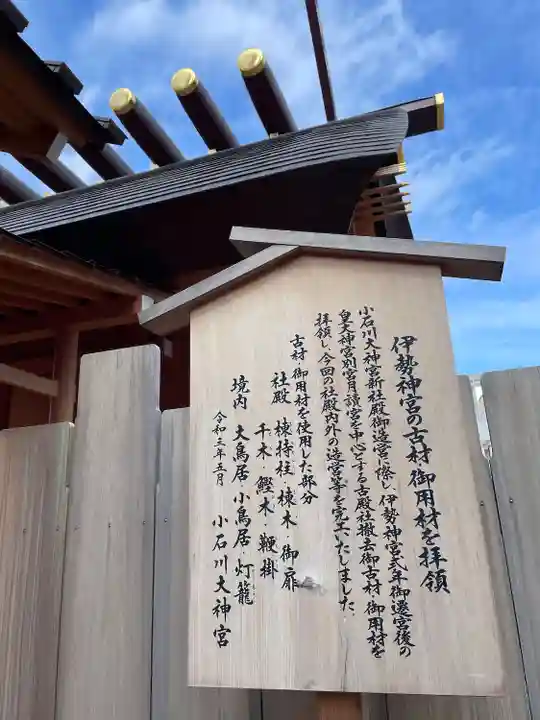 伊勢神宮の古材・御用材を拝領
小石川大神宮新社殿御造宮に際し、伊勢神宮式年御遷宮後の
皇大神宮別宮月讀宮を中心とする古殿社撤去御古材・御用材を
拝領し、今回の社殿内外の造営等を完工いたしました。
古材・御用材を使用した部分
社殿 棟持柱・棟木・御扉
千木・鰹木・鞭掛
境内 大鳥居・小鳥居・灯籠
令和三年五月 小石川大神宮